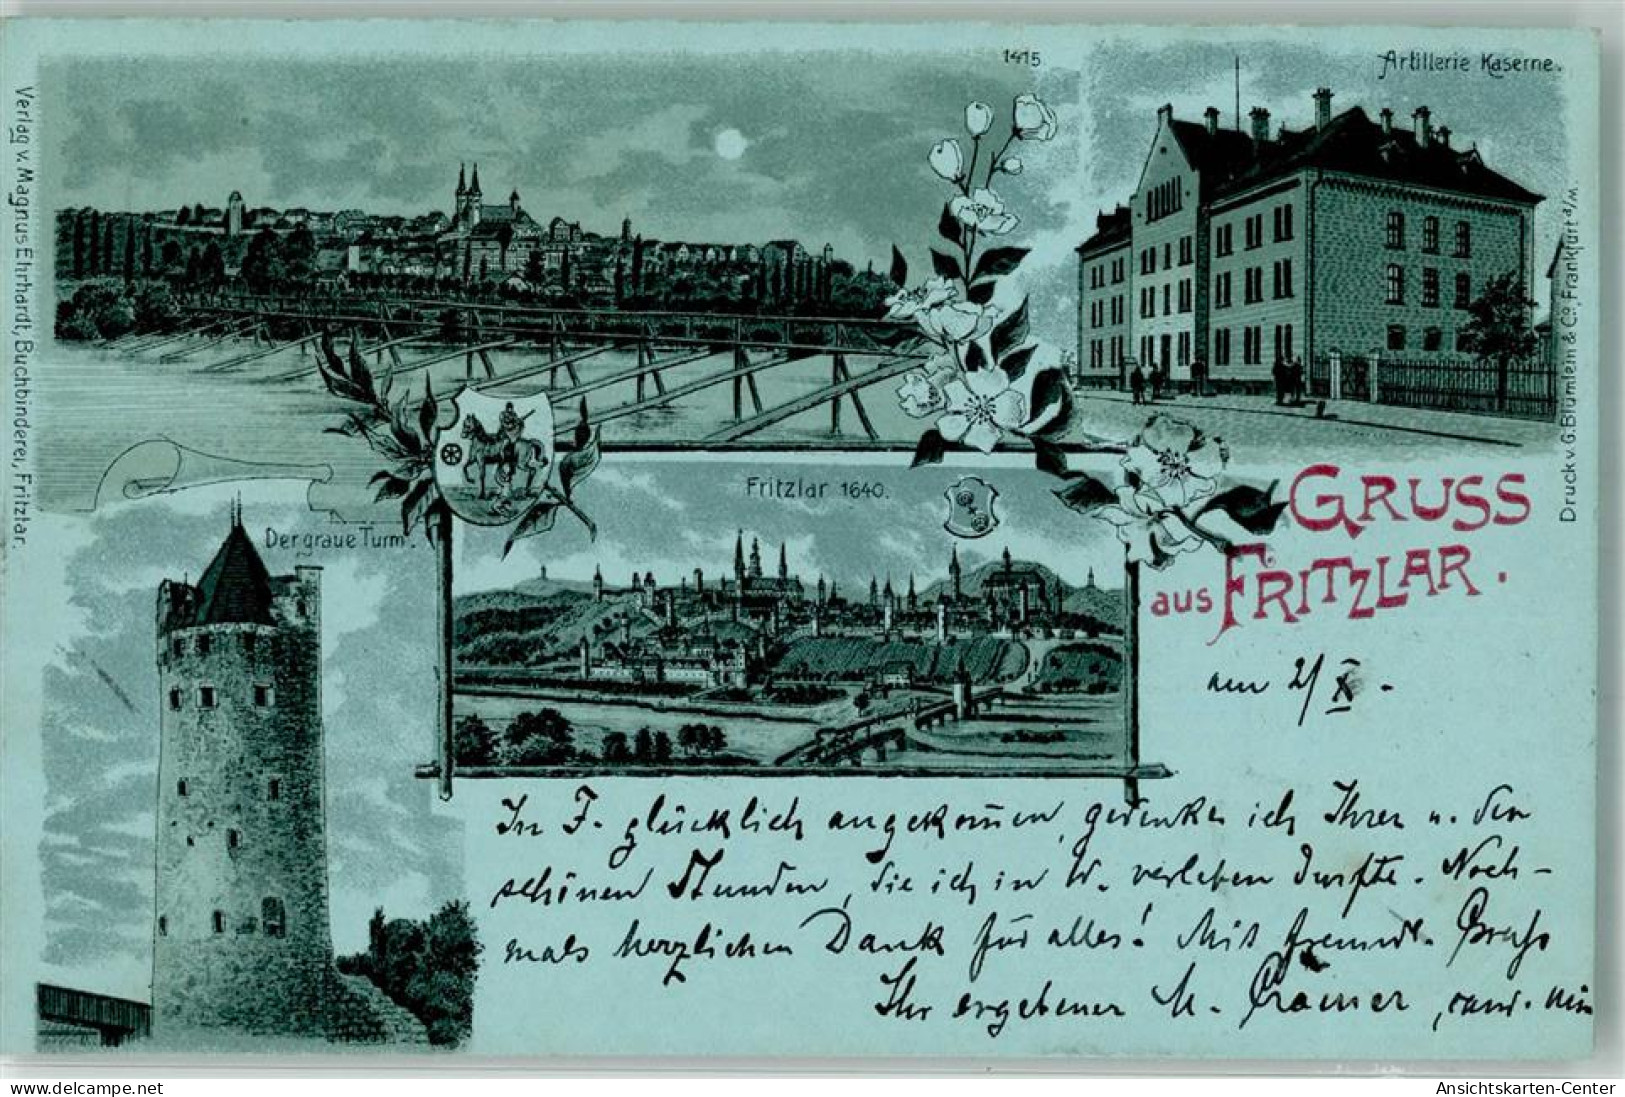 1415
Artillerie Kaserne.
Verlag v. Magnus Ehrhardt, Buchbinderei, Fritzlar.
Druck v. G. Blümlein & Co., Frankfurt a/M.
Fritzlar 1640.
Der graue Turm.
GRUSS
aus FRITZLAR.
am 2/X.
In F. glücklich angekom̅en, gedenke ich Ihrer u. der
schönen Stunden, die ich in W. verleben durfte. Noch-
mals herzlichen Dank für alles! Mit freundl. Gruß
Ihr ergebener H. Cramer, cand. min
www.delcampe.net
Ansichtskarten-Center